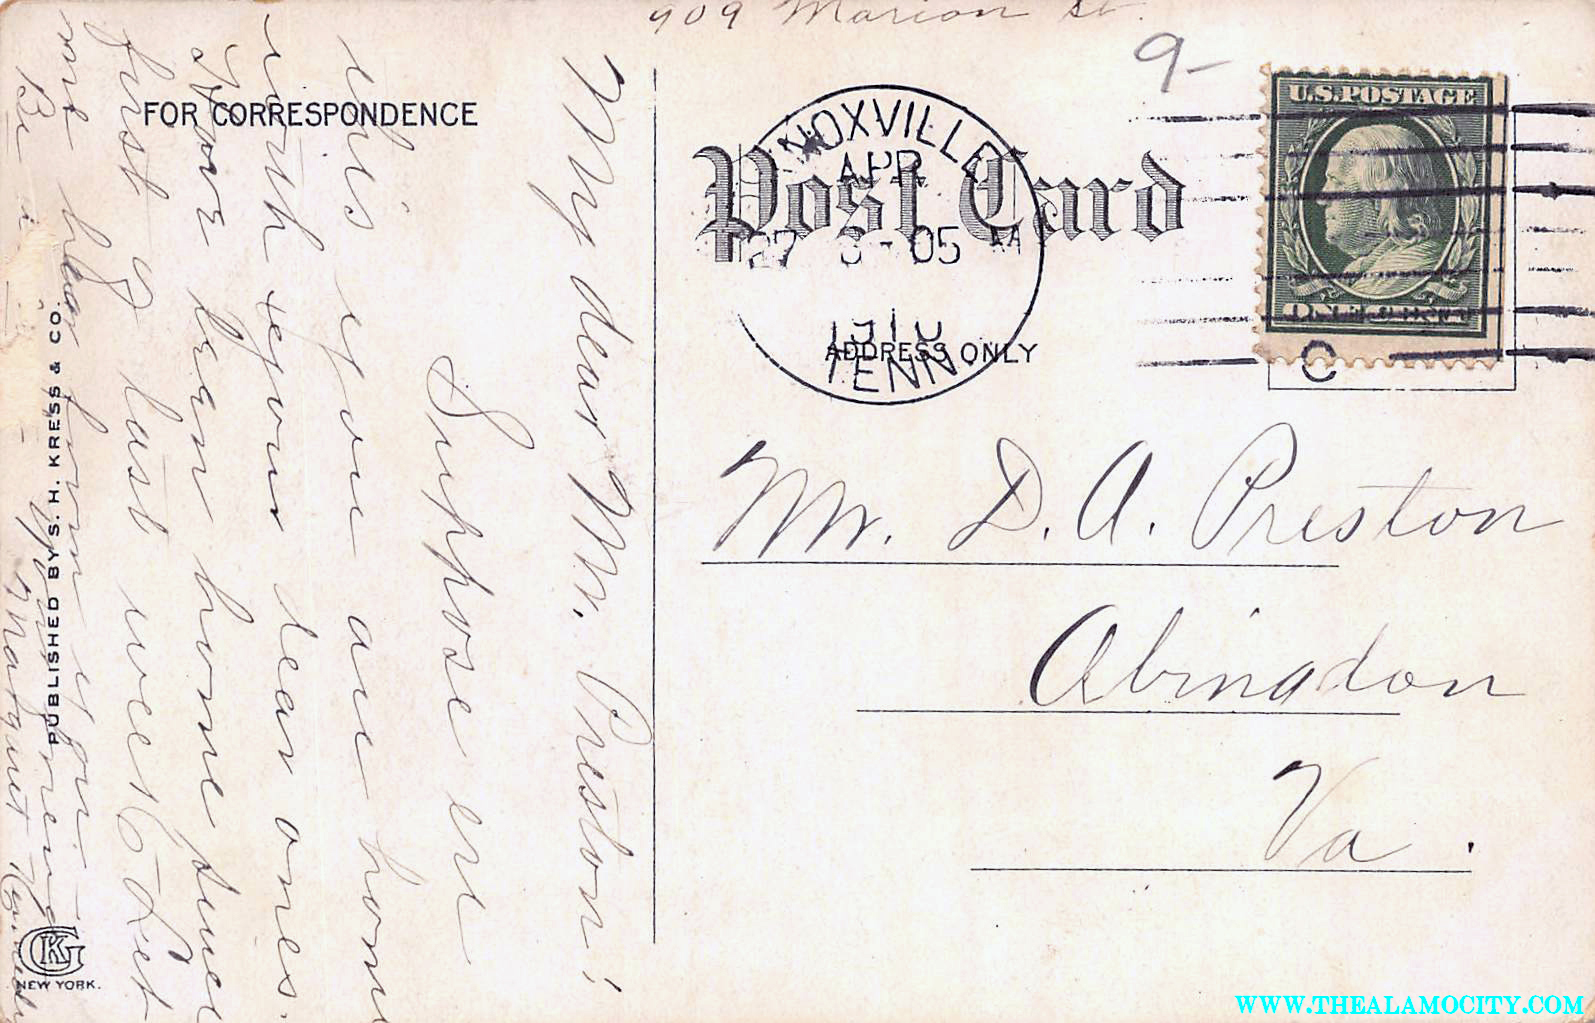 909 Marion St.
9-
FOR CORRESPONDENCE
My dear Mr. Preston:
Suppose ere
this you are home
with your dear ones.
Have been home since
first of last week. Let
me hear from you.
Your friend
Margaret
PUBLISHED BY S. H. KRESS & CO.
KG
NEW YORK.
Post Card
KNOXVILLE
APR
27 -05 A
1910
TENN.
U.S.POSTAGE
ONE CENT
C
ADDRESS ONLY
Mr. D. A. Preston
Abingdon
Va.
WWW.THEALAMOCITY.COM